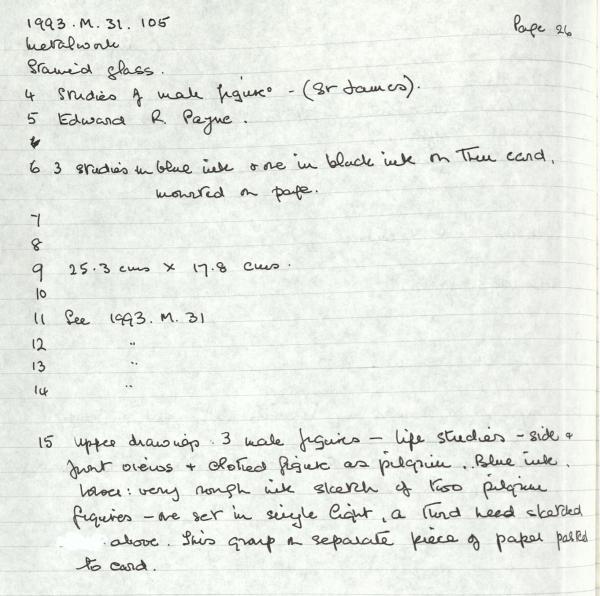 1993.M.31.105 Page 26
Metalwork
Stained glass.
4 Studies of male figure - (St James).
5 Edward R. Payne.
6 3 studies in blue ink & one in black ink on thin card,
mounted on page.
7
8
9 25.3 cms x 17.8 cms.
10
11 See 1993.M.31
12 "
13 "
14 "
15 Upper drawings. 3 male figures - life studies - side &
front views & clothed figure as pilgrim. Blue ink.
Lower: very rough ink sketch of two pilgrim
figures - one set in single light, a third head sketched
above. This group on separate piece of paper pasted
to card.